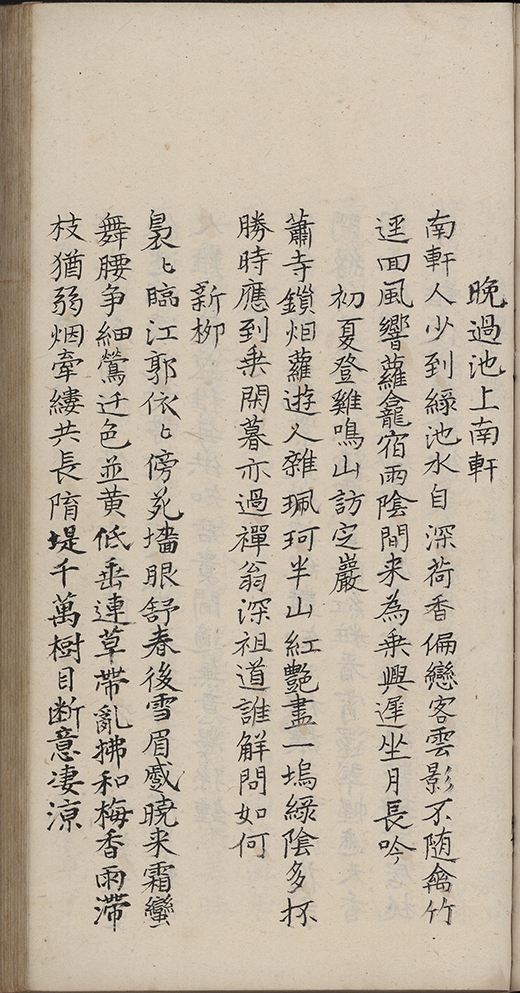 晚過池上南軒
南軒人少到緑池水自深荷香偏戀客雲影不随禽竹
逕囬風響蘿龕宿雨陰間来為乗興遲坐月長吟
初夏登雞鳴山訪定巖
蕭寺鎖烟蘿遊人雜珮珂半山紅艷盡一塢緑陰多杯
勝時應到乗閑暮亦過禪翁深祖道誰解問如何
新栁
裊〻臨江郭依〻傍苑墻眼舒春後雪眉蹙曉来霜蠻
舞腰争細鶯迁色並黄低垂連草帶亂拂和梅香雨滞
枝猶弱烟牽縷共長隋堤千萬樹目断意凄凉